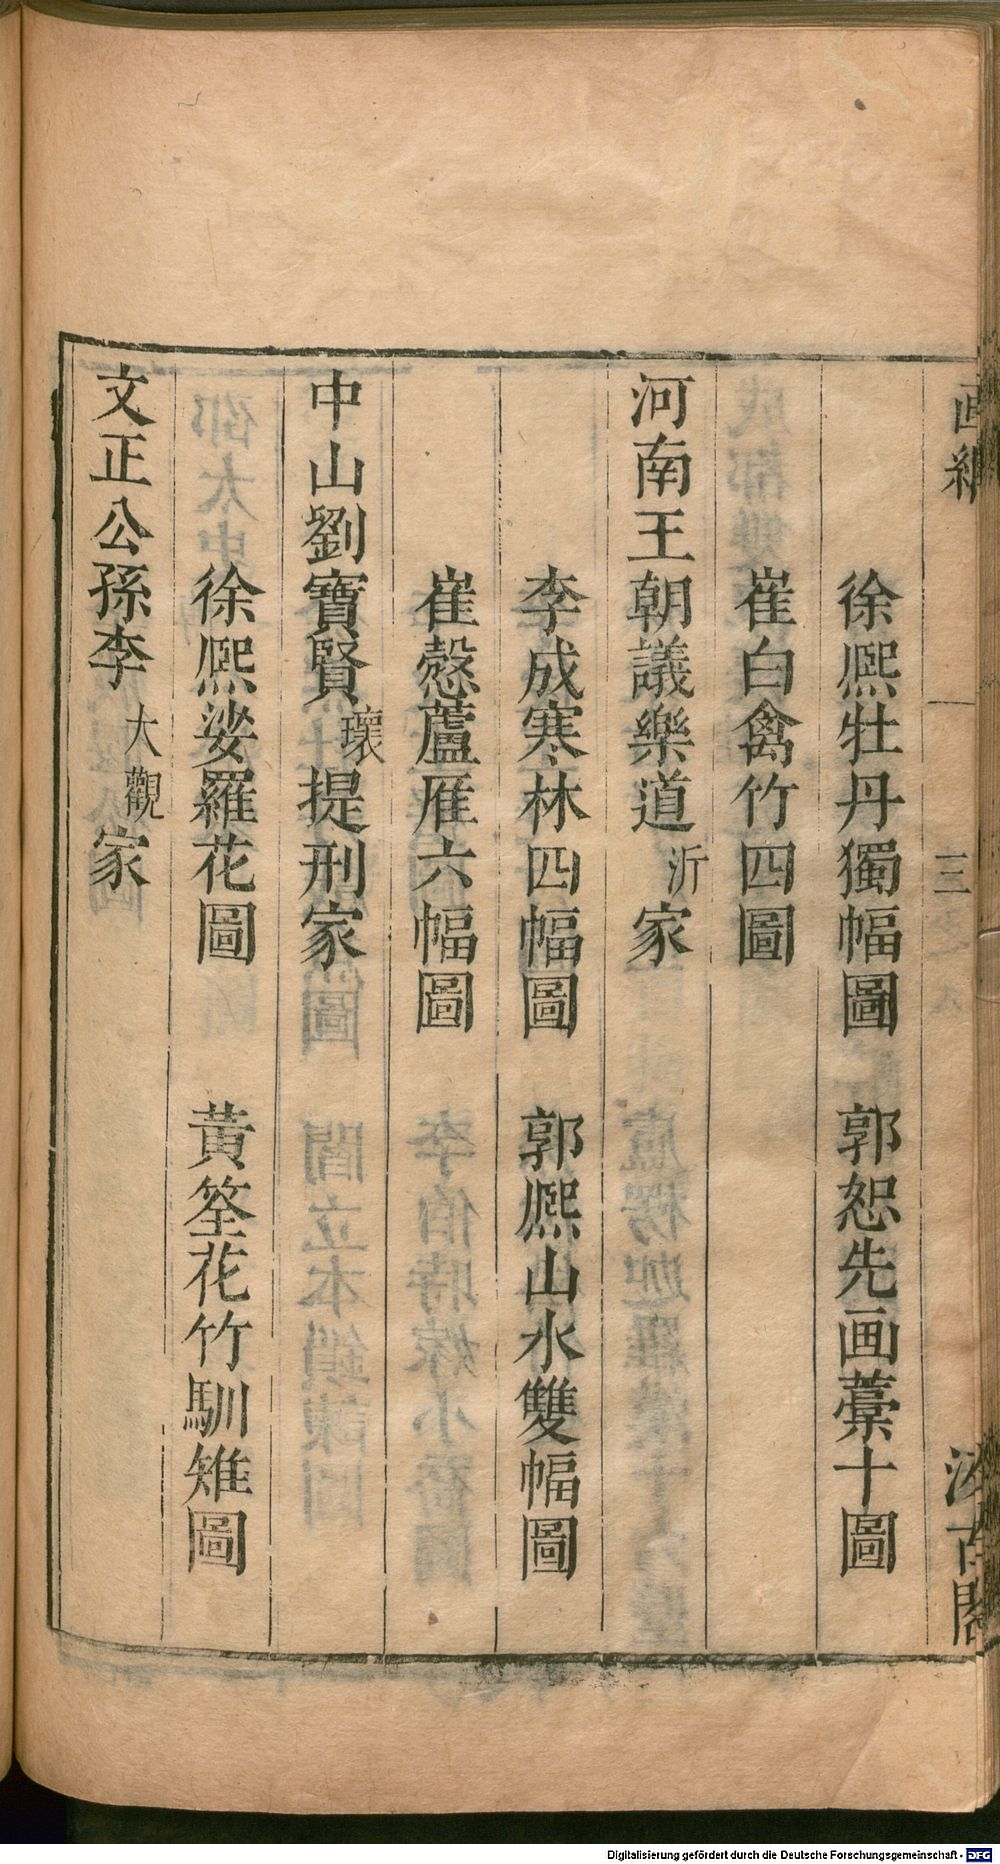 徐熙牡丹獨幅圖　郭恕先画藁十圖
崔白禽竹四圖
河南王朝議樂道沂家
李成寒林四幅圖　郭熙山水雙幅圖
崔慤蘆雁六幅圖
中山劉寶賢瓌提刑家
徐熙娑羅花圖　黃筌花竹馴雉圖
文正公孫李大觀家
画繼　三　汲古閣
Digitalisierung gefördert durch die Deutsche Forschungsgemeinschaft - DFG